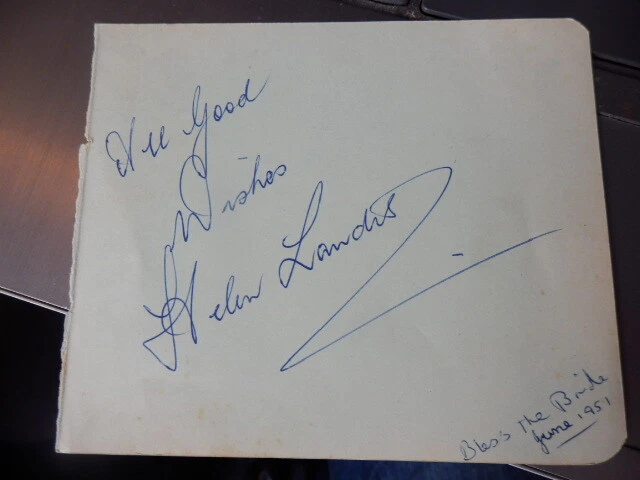 All Good
Wishes
Helen Landis
Bless the Bride
June 1951